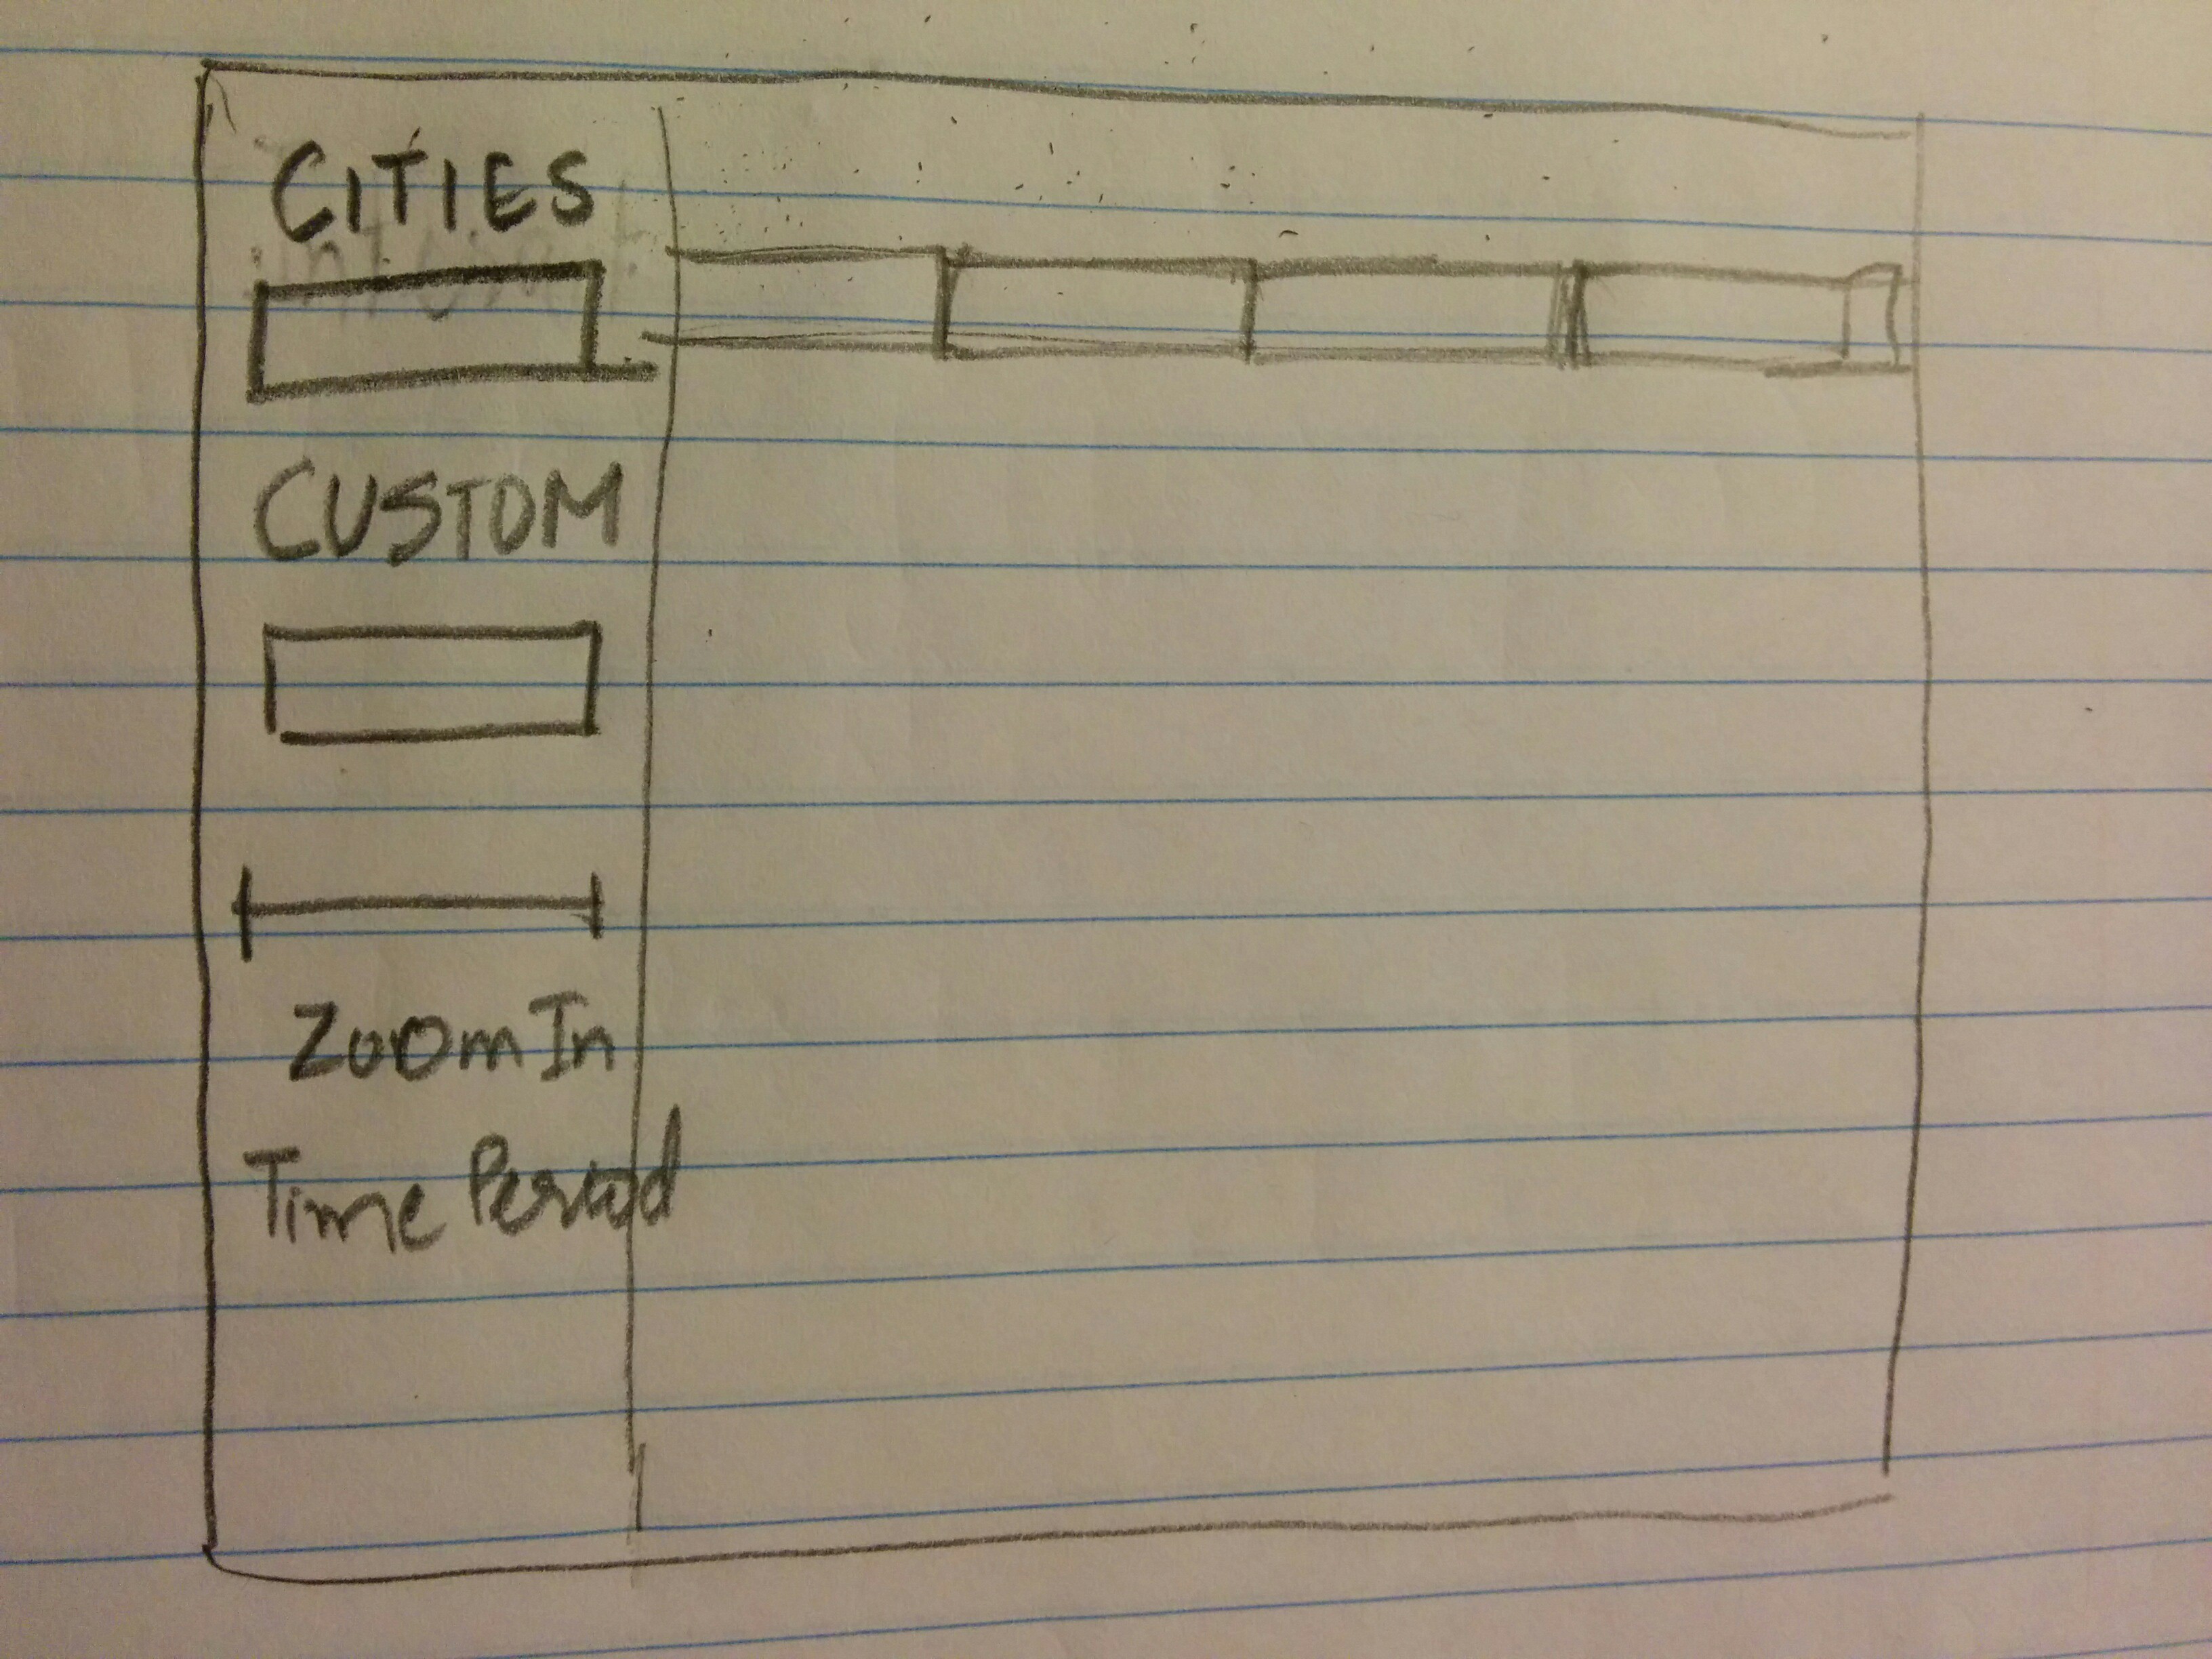 CITIES
CUSTOM
Zoom In
Time Period